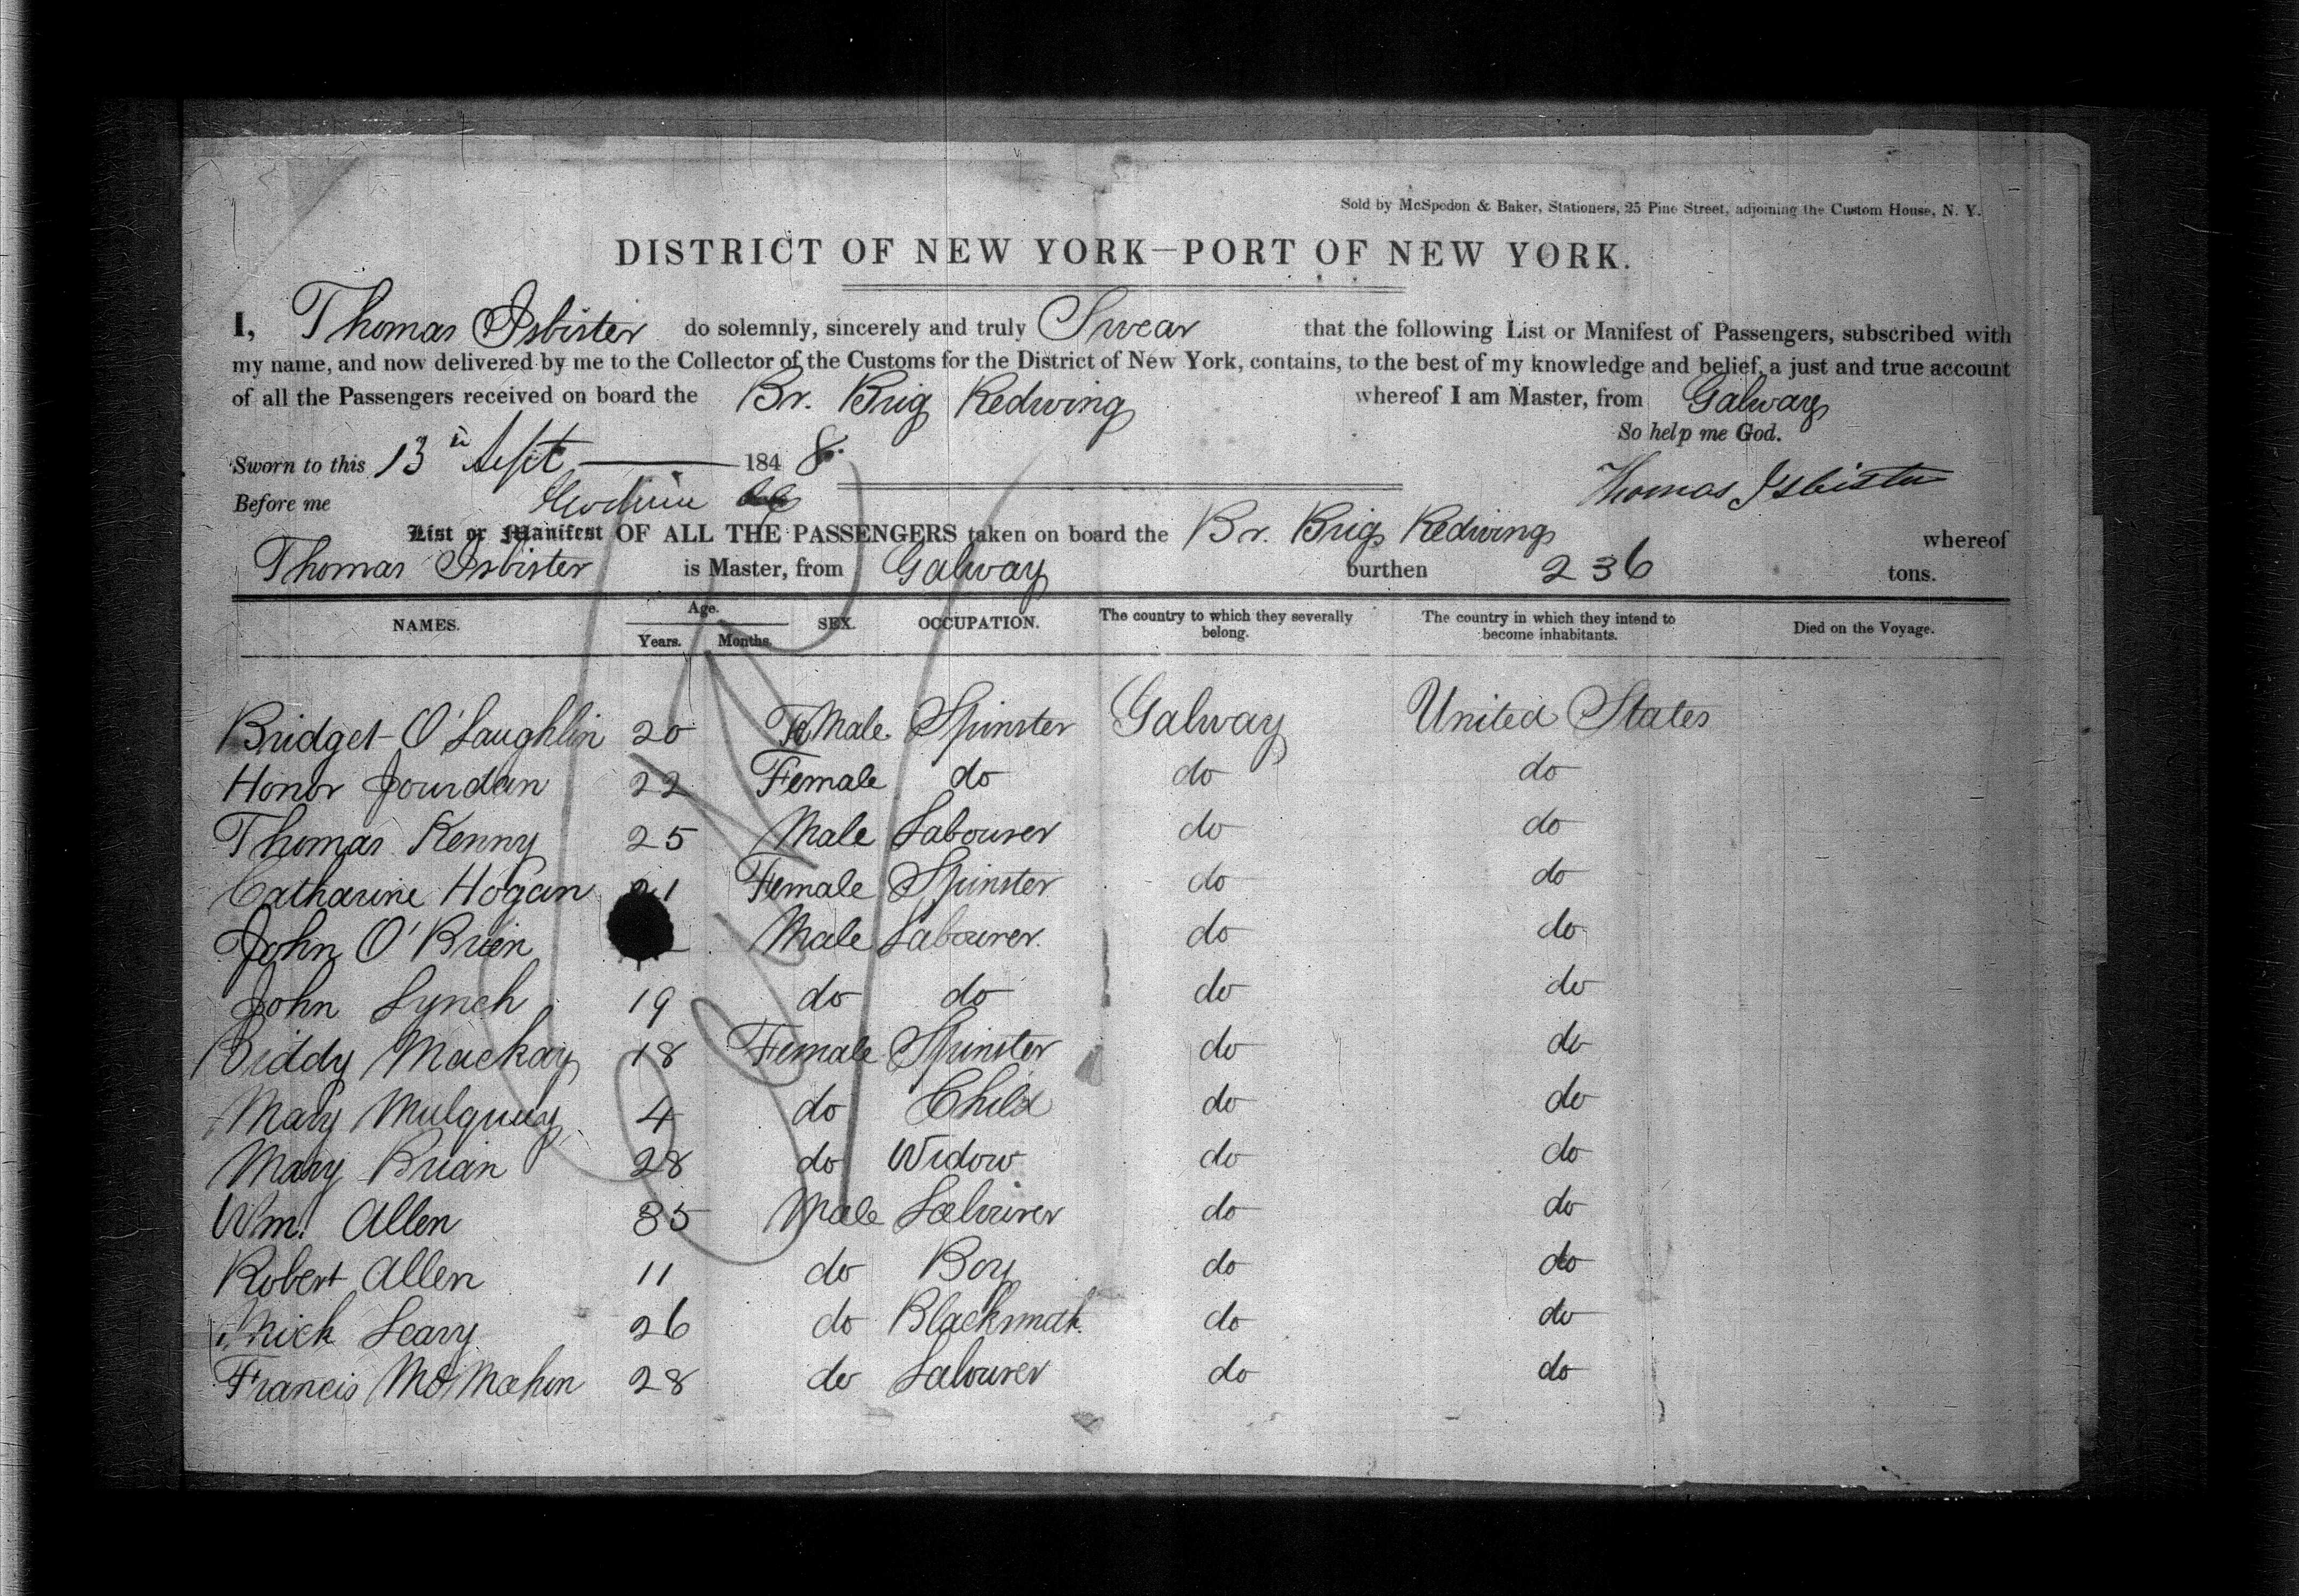 Sold by McSpedon & Baker, Stationers, 25 Pine Street, adjoining the Custom House, N. Y.
DISTRICT OF NEW YORK—PORT OF NEW YORK.
I, Thomas Isbister do solemnly, sincerely and truly Swear that the following List or Manifest of Passengers, subscribed with
my name, and now delivered by me to the Collector of the Customs for the District of New York, contains, to the best of my knowledge and belief, a just and true account
of all the Passengers received on board the Br. Brig Redwing whereof I am Master, from Galway
So help me God.
Sworn to this 13th Sept 1848.
Thomas Isbister
Before me
List or Manifest OF ALL THE PASSENGERS taken on board the Br. Brig Redwing whereof
Thomas Isbister is Master, from Galway burthen 236 tons.
NAMES. Age. Years. Months. SEX. OCCUPATION. The country to which they severally belong. The country in which they intend to become inhabitants. Died on the Voyage.
Bridget O'Laughlin 20 FeMale Spinster Galway United States
Honor Jourdan 22 Female do do do
Thomas Kenny 25 Male Labourer do do
Catharine Hogan 21 Female Spinster do do
John O'Brien Male Labourer. do do
John Lynch 19 do do do do
Biddy Mackay 18 Female Spinster do do
Mary Mulquiy 4 do Child do do
Mary Brian 28 do Widow do do
Wm. Allen 35 Male Labourer do do
Robert Allen 11 do Boy do do
Mick Leary 26 do Blacksmith do do
Francis McMahon 28 do Labourer do do